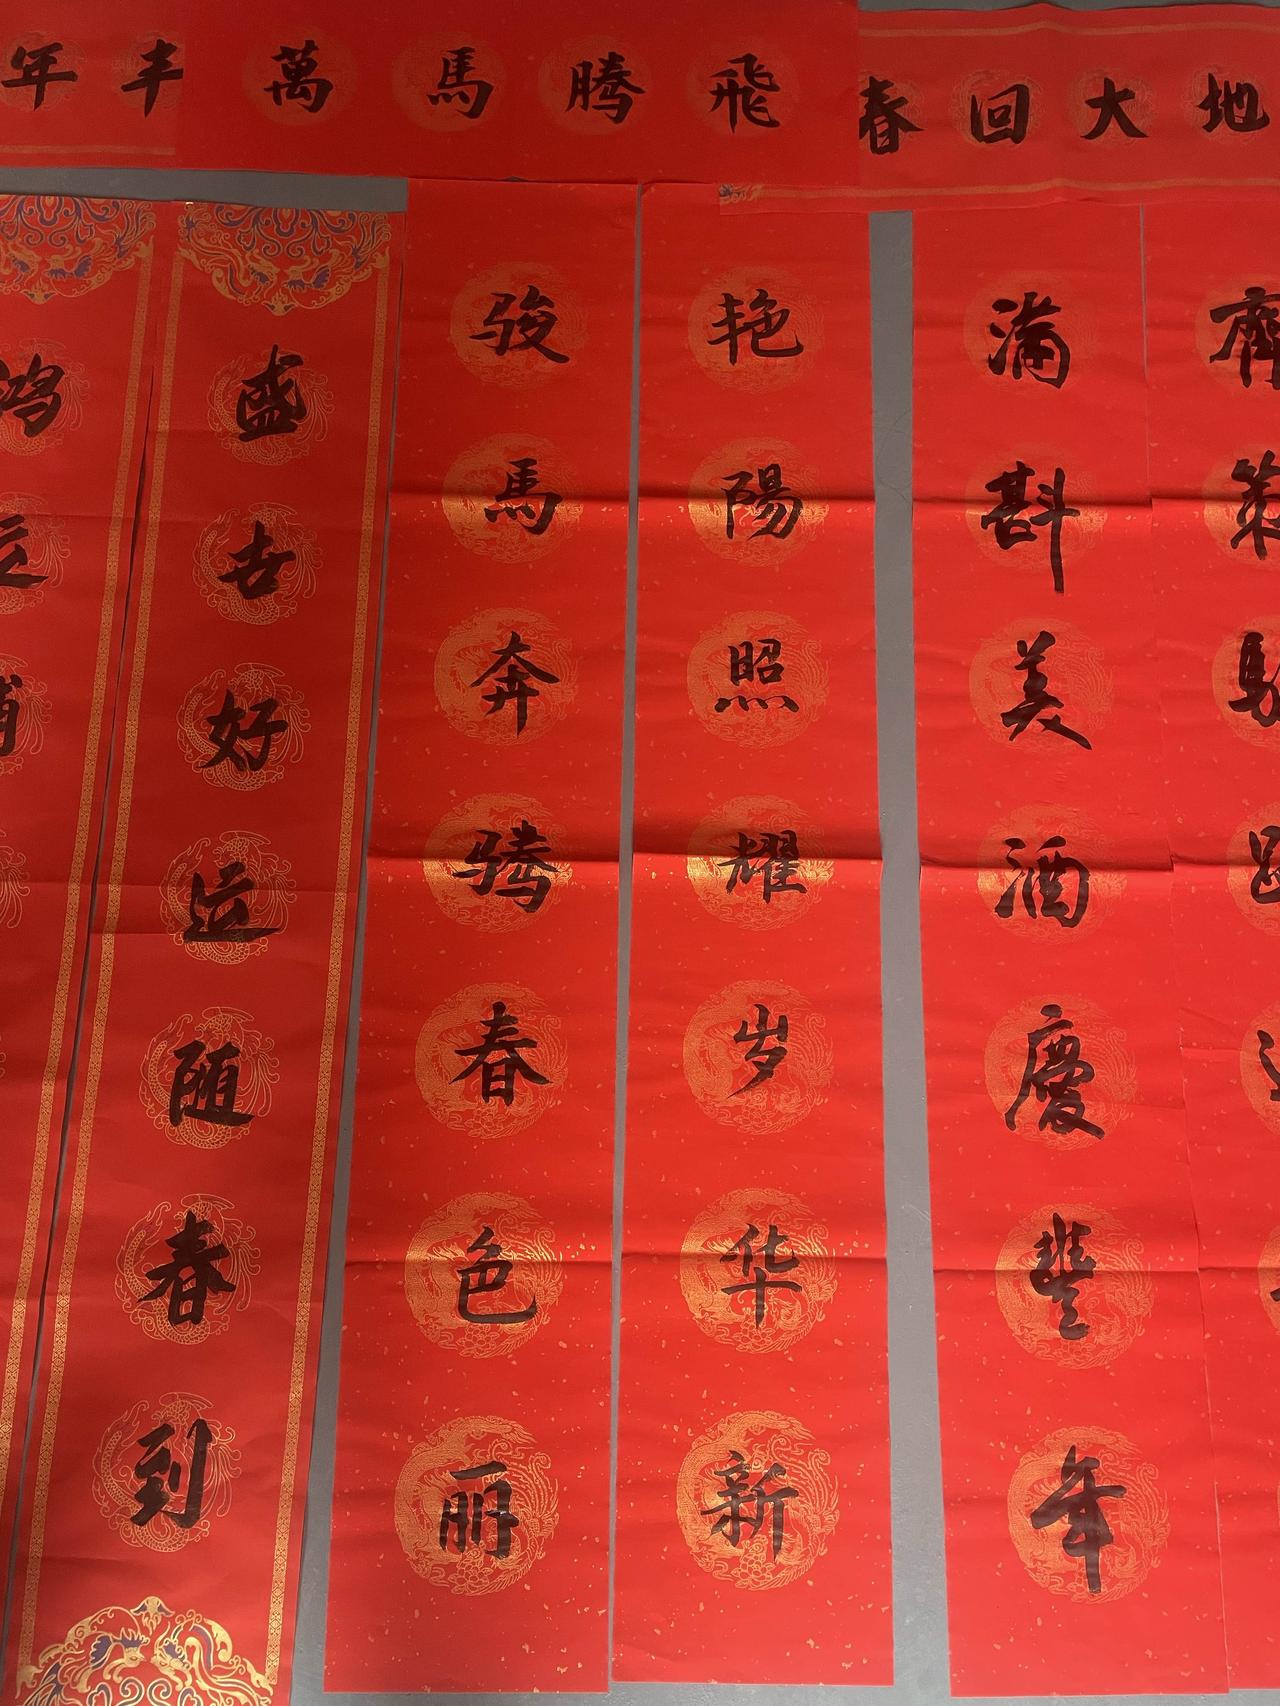 年丰
萬馬腾飛
春回大地
鸿
盛世好运随春到
骏馬奔骑春色丽
艳陽照耀岁华新
满斟美酒慶豐年
齊策